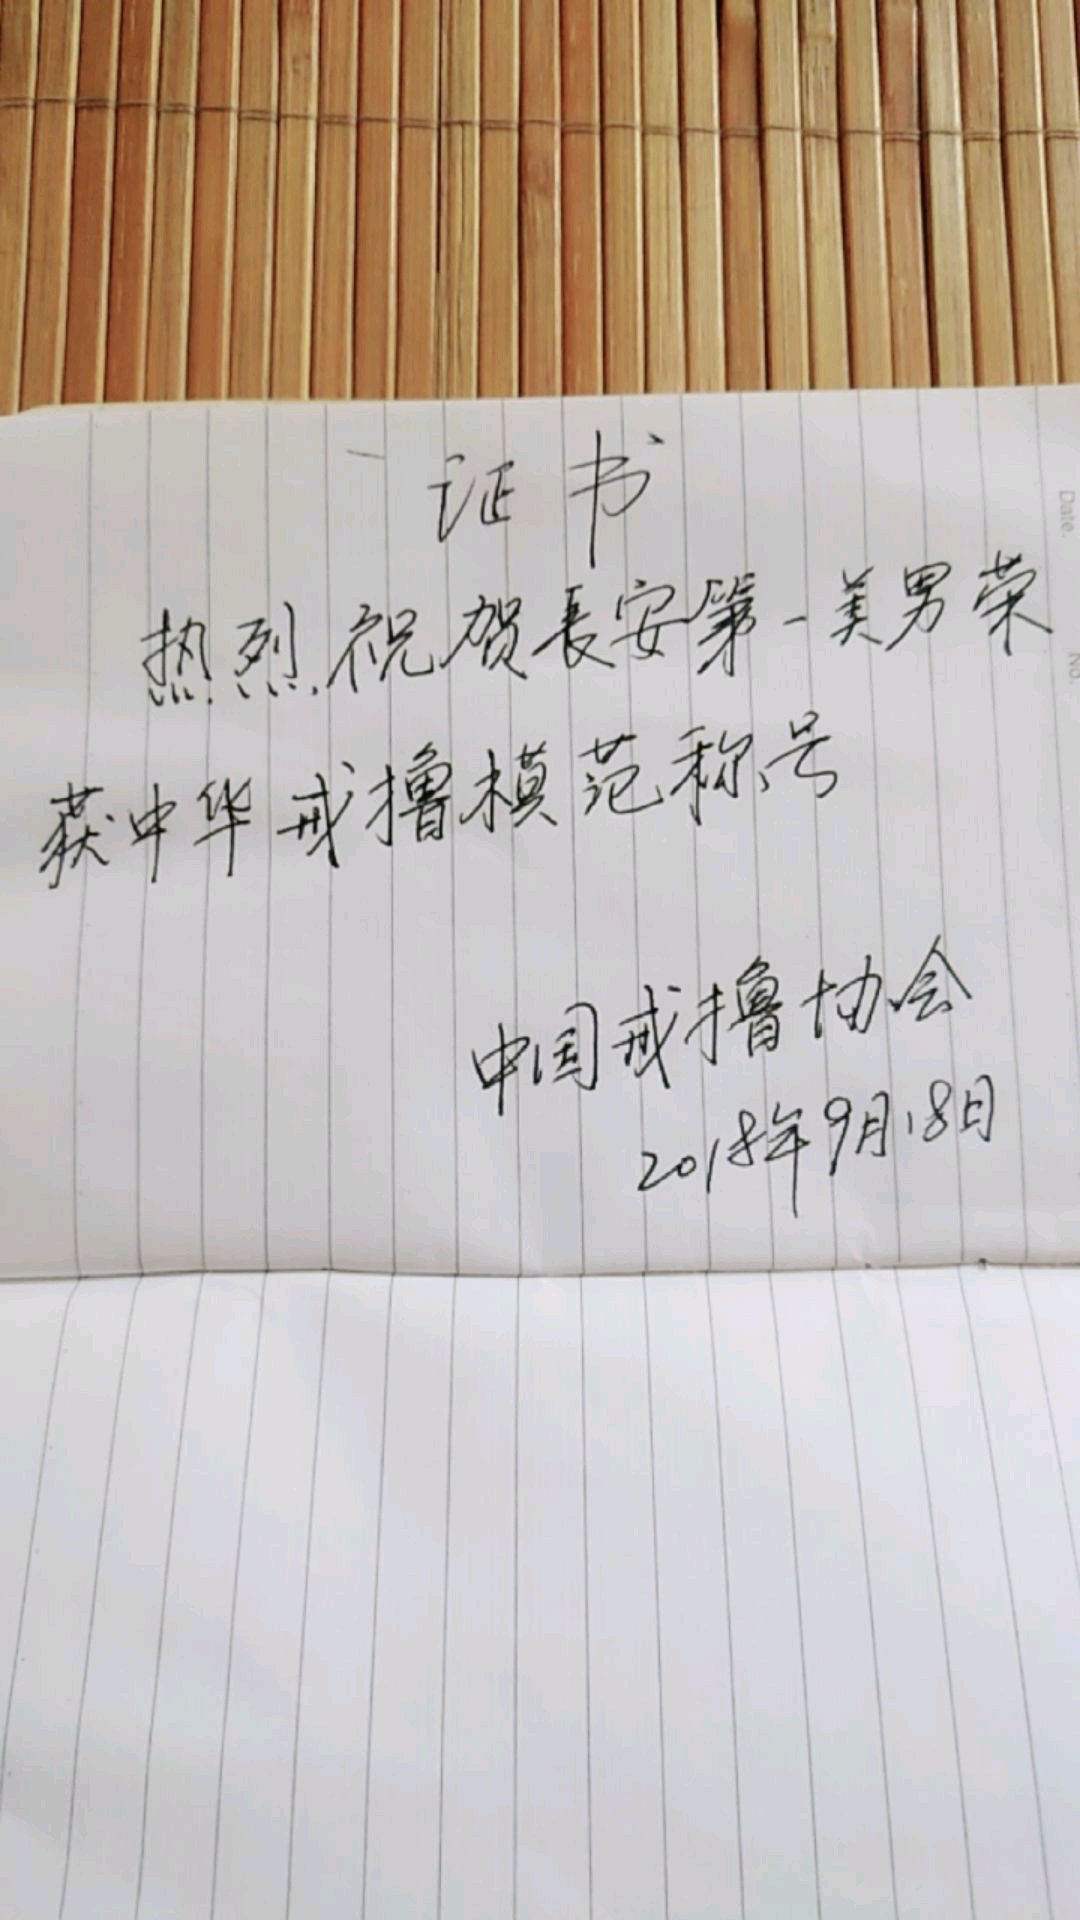 证书
热烈祝贺長安第一美男荣
获中华戒撸模范称号
中国戒撸协会
2018年9月18日
Date.
No.